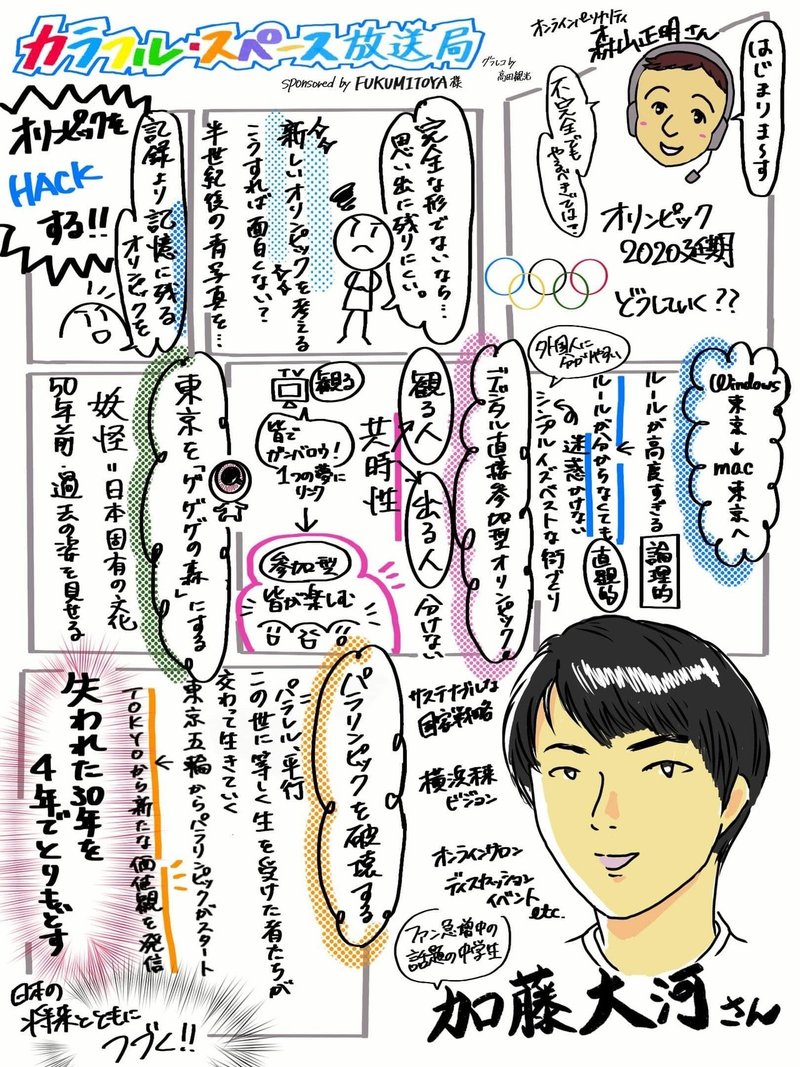 カラフル・スペース放送局
sponsored by FUKUMITOYA様
グラレコ by
高田観光
オンラインパーソナリティ
森山正明さん
はじまりま〜す
不完全でも
やるべきでは?
オリンピック
2020延期
どうしていく??
完全な形でないなら…
思い出に残りにくい。
新しいオリンピックを考える
こうすれば面白くない?
半世紀後の青写真を…
記録より記憶に残る
オリンピックを
オリンピックを
HACK
する!!
Windows
東京
↓
mac
東京へ
ルールが高度すぎる
論理的
↓
ルールが分からなくても
迷惑かけない
直観的
外国人に
分かりやすい
シンプルイズベストな街づくり
デジタル直接参加型オリンピック
観る人
出る人
分けない
共時性
TV
観る
皆で
ガンバロウ!
1つの夢に
リンク
↓
参加型
皆が楽しむ
東京を「ゲゲゲの森」にする
妖怪=日本固有の文化
50年前・過去の姿を見せる
パラリンピックを破壊する
=
パラレル、平行
この世に等しく生を受けた者たちが
交わって生きていく
東京五輪からパラリンピックがスタート
↓
TOKYOから新たな価値観を発信
失われた30年を
4年でとりもどす
日本の
将来とともに
つづく!!
サステナブルな
国家戦略
横浜未来
ビジョン
オンラインサロン
ディスカッション
イベント
etc.
ファン急増中の
話題の中学生
加藤大河さん